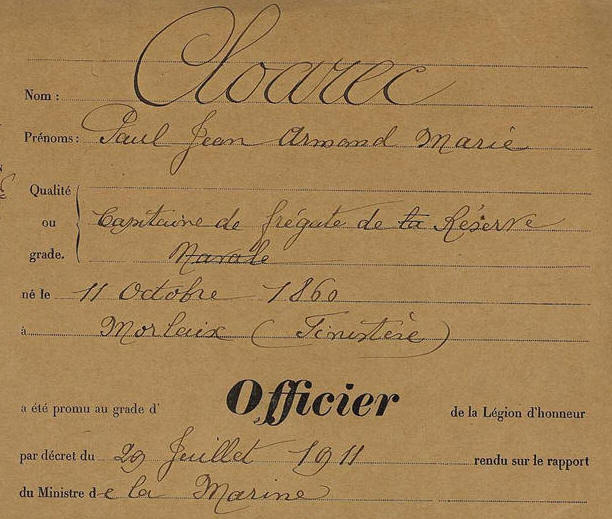 Nom : Cloarec
Prénoms : Paul Jean Armand Marie
Qualité
ou Capitaine de frégate de la Réserve
grade. Navale
né le 11 Octobre 1860
à Morlaix (Finistère)
a été promu au grade d' Officier de la Légion d'honneur
par décret du 29 Juillet 1911 rendu sur le rapport
du Ministre de la Marine